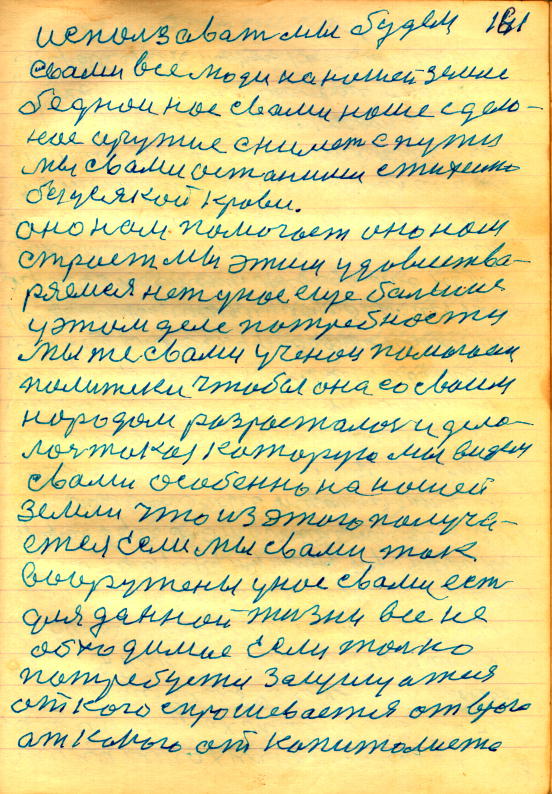 исползоват мы будем 191
свами все люди на ношей земле
бедной ное свами ноше сдело-
ное оружие снимет с пути
мы свами останимся
без усякой крови.
оно нам помогает оно нам
строет мы этим удовлетва-
ряемся нет у нос еще больше
у этом деле потребности
мы же свами ученои помогаем
политики чтобы она со своим
народом разросталос и дела-
лос токоя которую мы видем
свами особенно на ношей
земли что из этого получа-
ется если мы свами так
вооружены унос свами ест
для данной жизни все не
обходимое если толко
потребуетя защищатея
от кого спрошевается от врого
ат какого от копитолисто